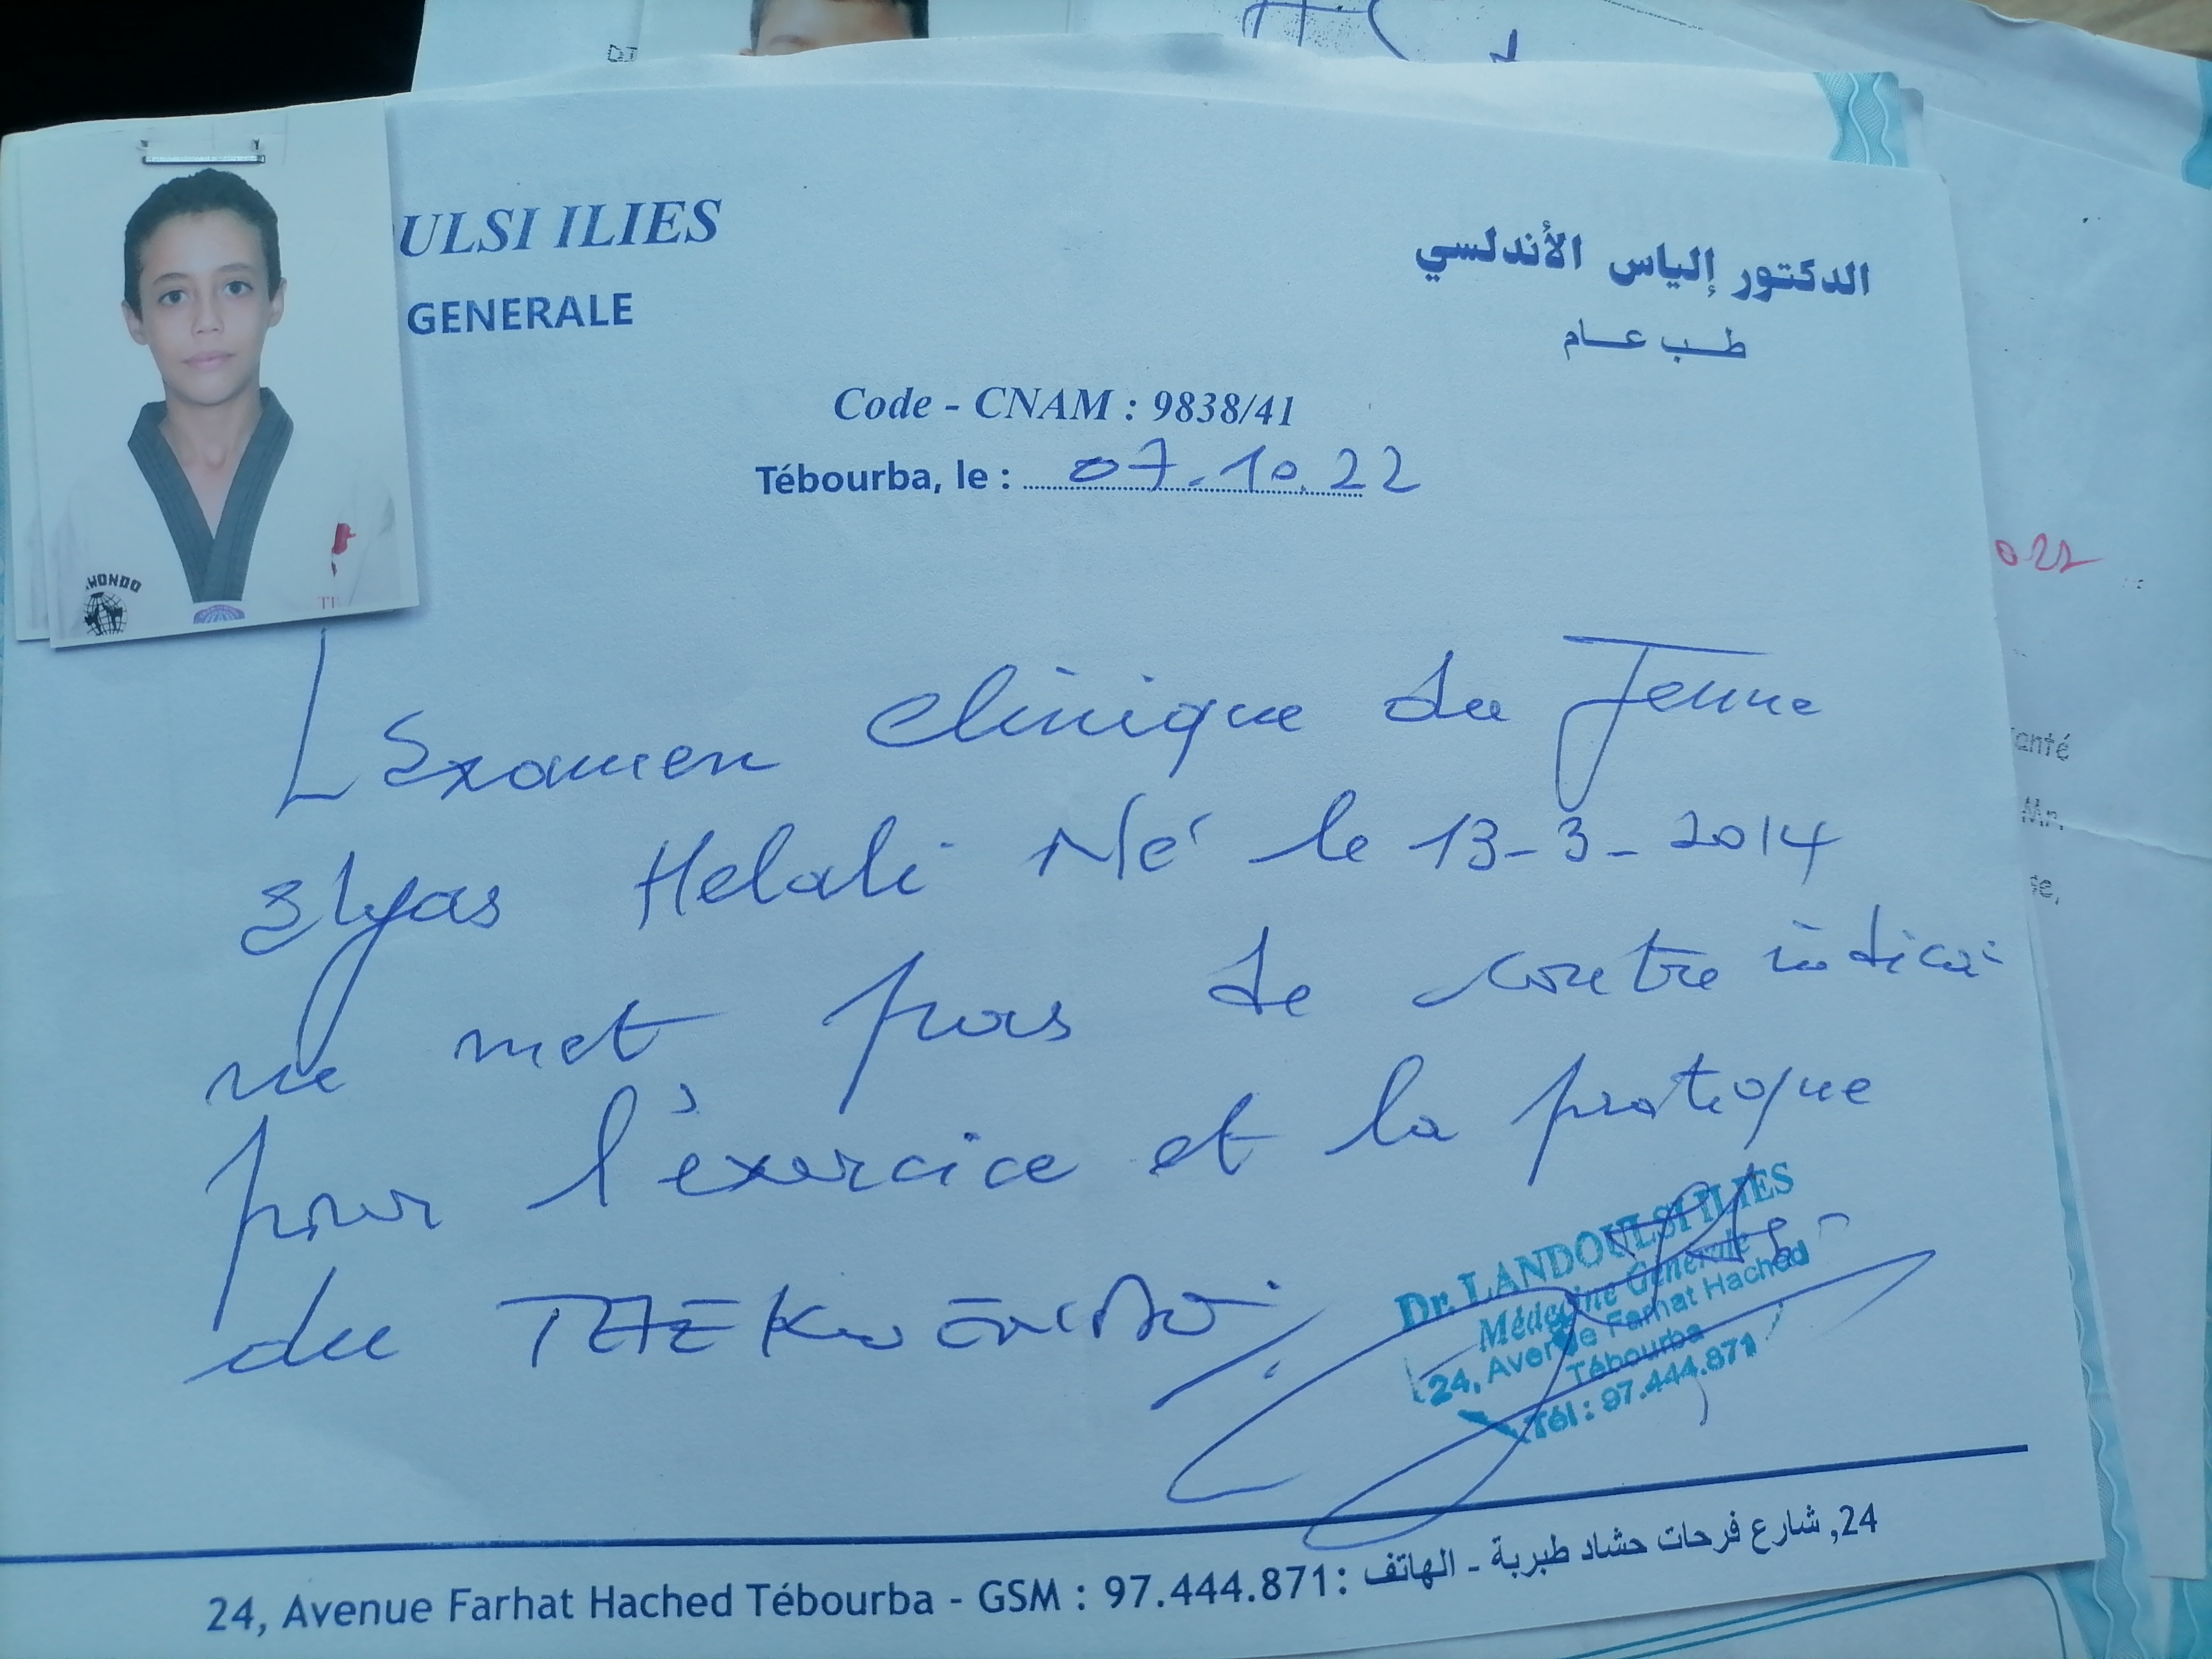 ULSI ILIES
GENERALE
الدكتور إلياس الأندلسي
طب عام
Code - CNAM : 9838/41
Tébourba, le : 07.10.22
L'Examen clinique du Jeune
Elyas Helali Né le 13-3-2014
ne met pas de contre indica-
pour l'exercice et la pratique
du
Dr. LANDOULSI ILIES
Médecine Générale
24, Avenue Farhat Hached
Tébourba
Tél : 97.444.871
24, شارع فرحات حشاد طبربة - الهاتف :
24, Avenue Farhat Hached Tébourba - GSM : 97.444.871
WONDO
022
anté
Mr.